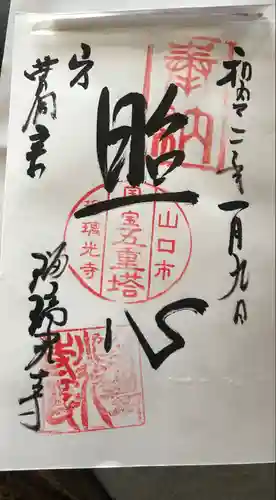 奉納
令和二年一月九日
照心
山口市
国宝
五重塔
瑠璃光寺
瑠璃光寺